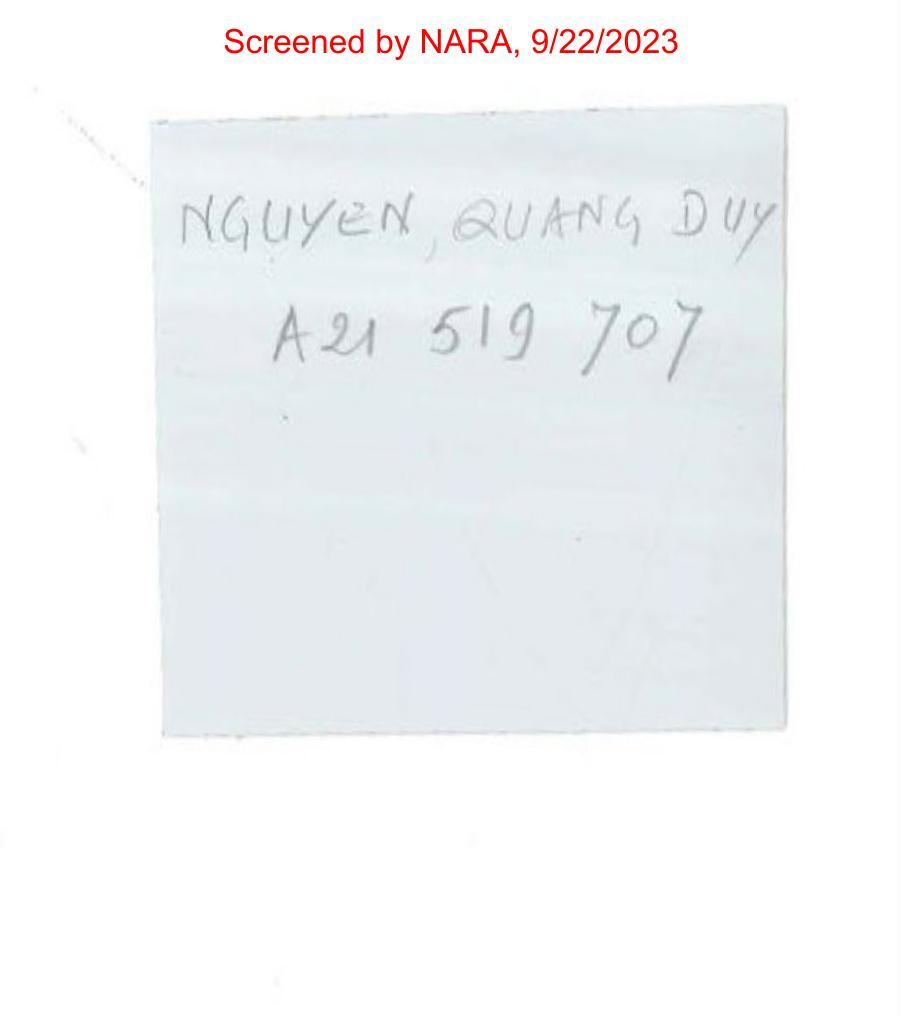 Screened by NARA, 9/22/2023
NGUYEN, QUANG DUY
A21 519 707